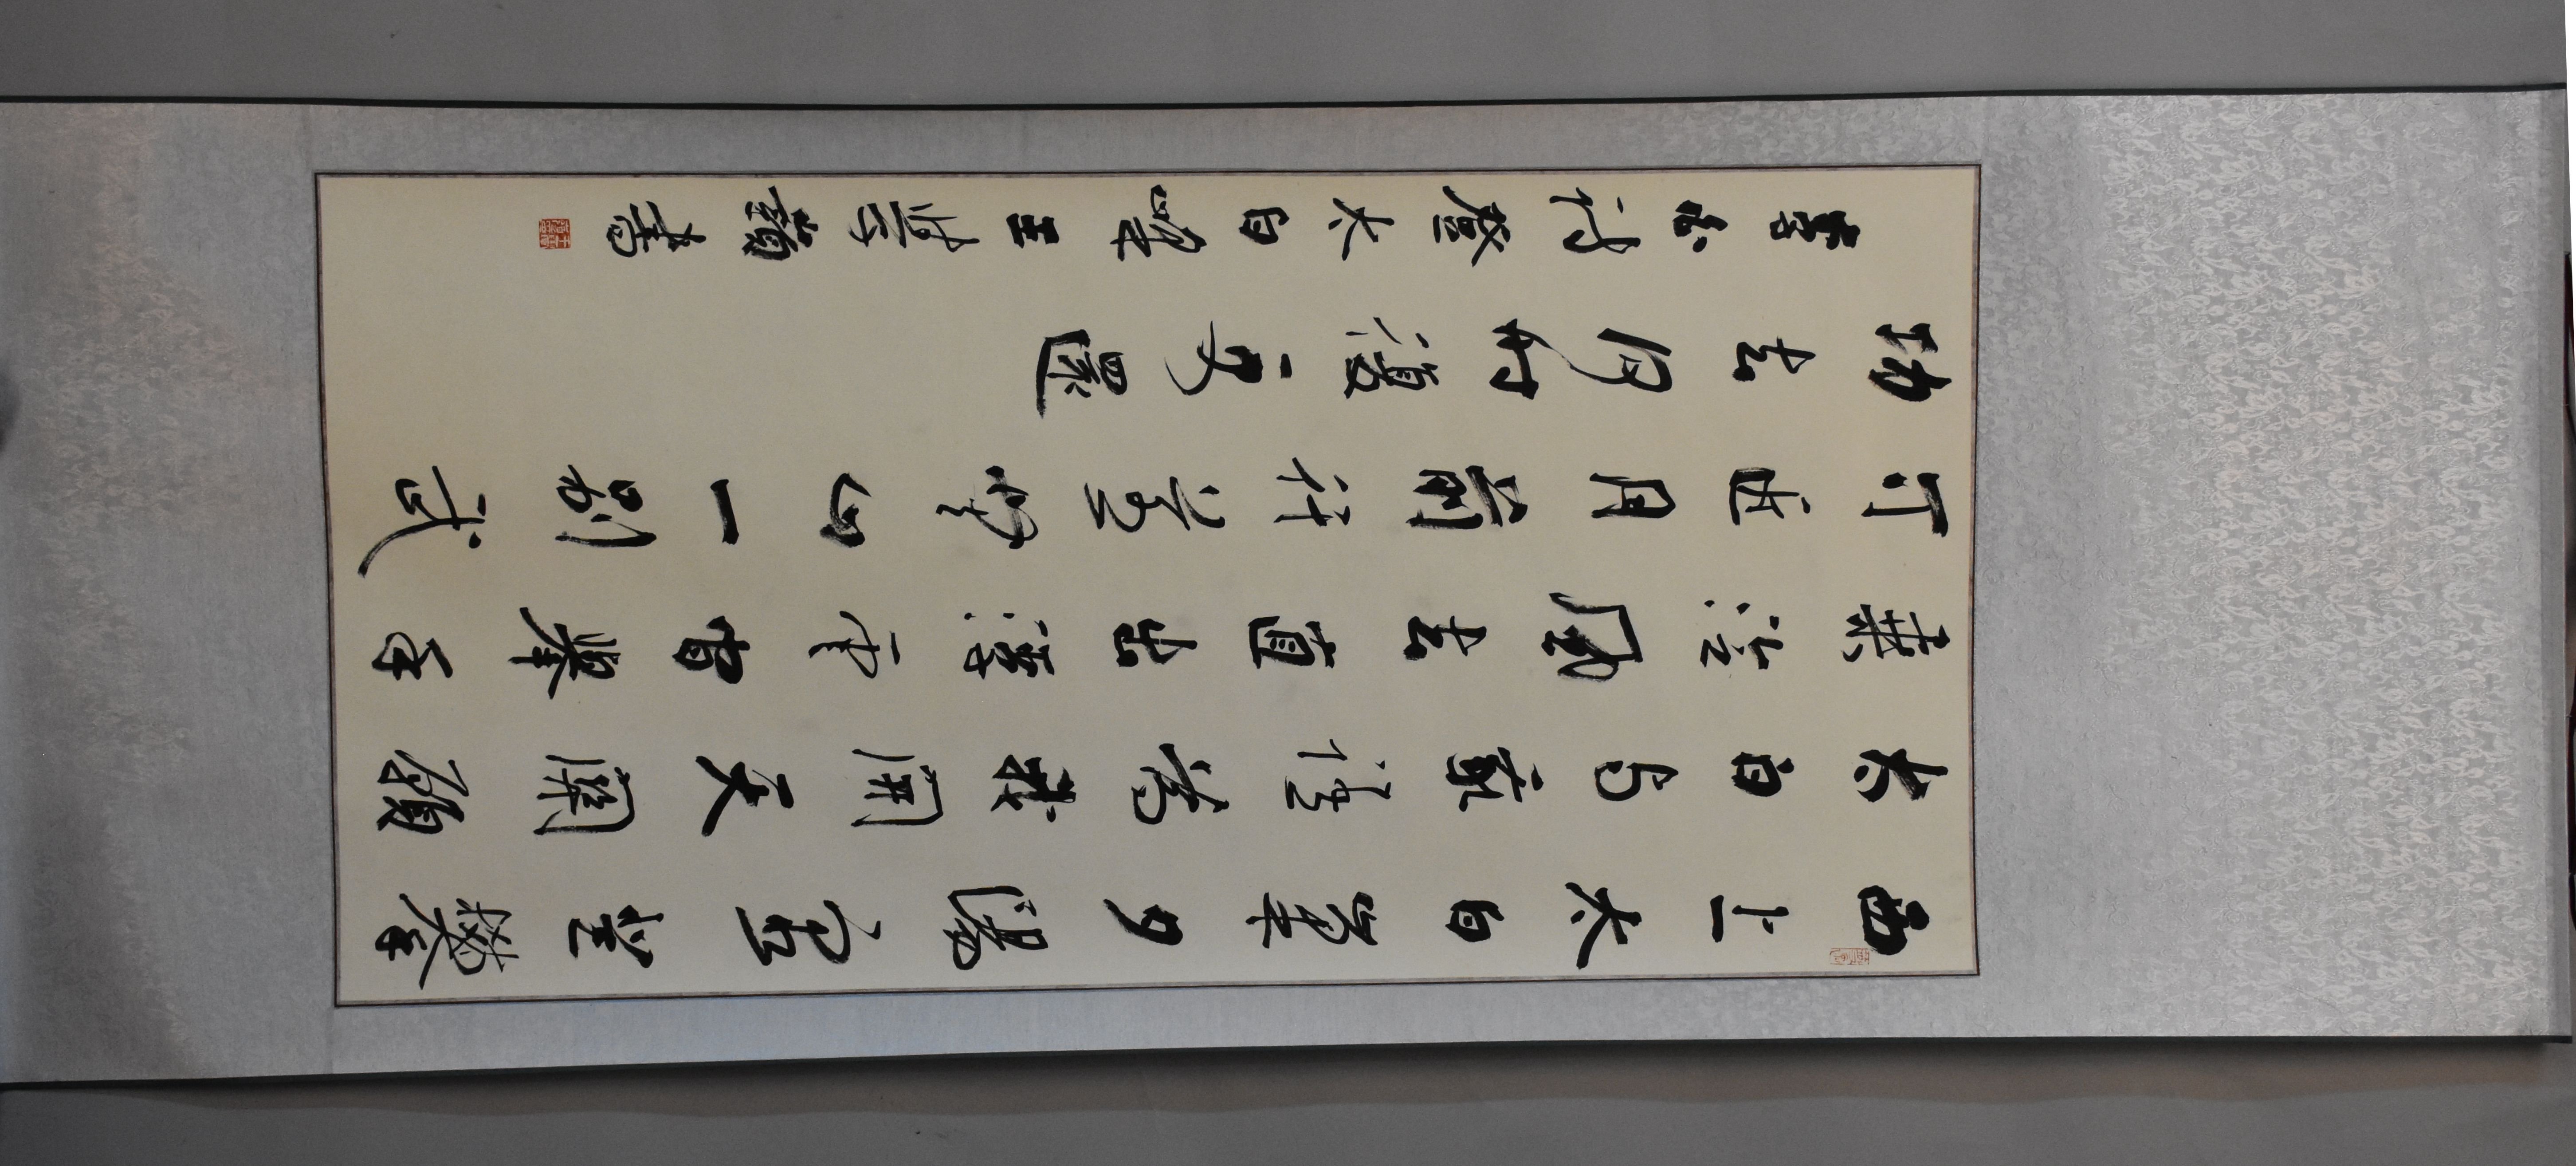 西上太白峯夕陽窮登攀
太白与我語為我開天關願
乘泠風去直出浮雲間舉手
可近月前行若無山一別武
功去何时復更還
李白詩登太白峯王學嶺書